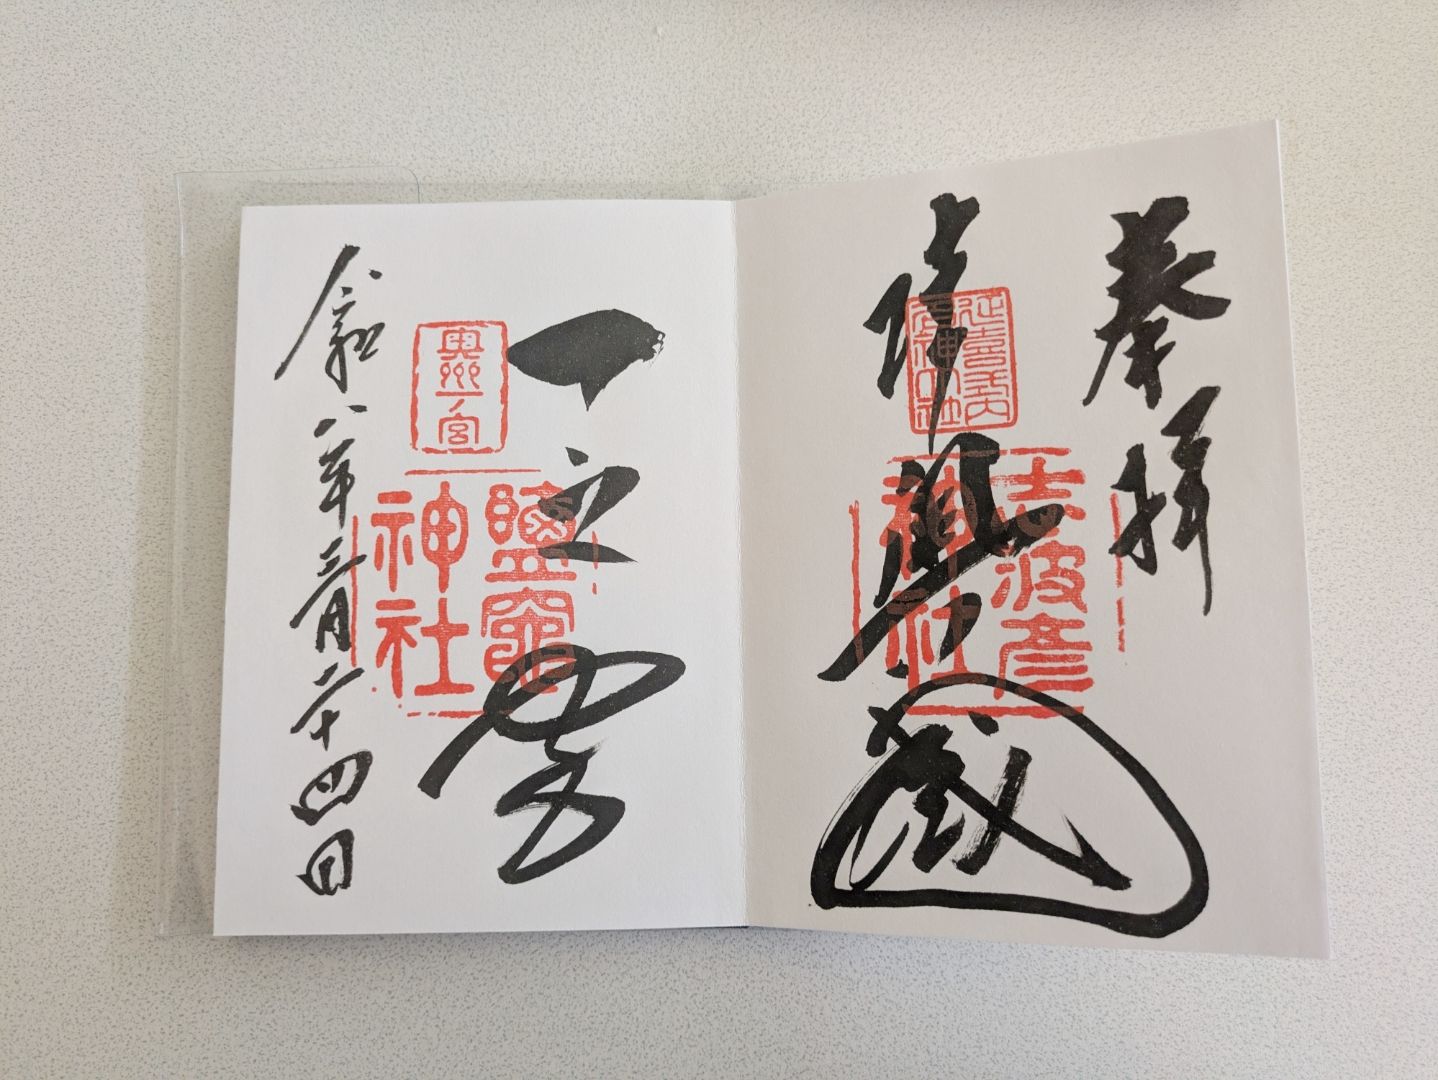 奉拝
陸奥國
延喜式内
名神大社
志波彦
神社
一之宮
奥州一宮
鹽竈
神社
令和八年三月二十四日